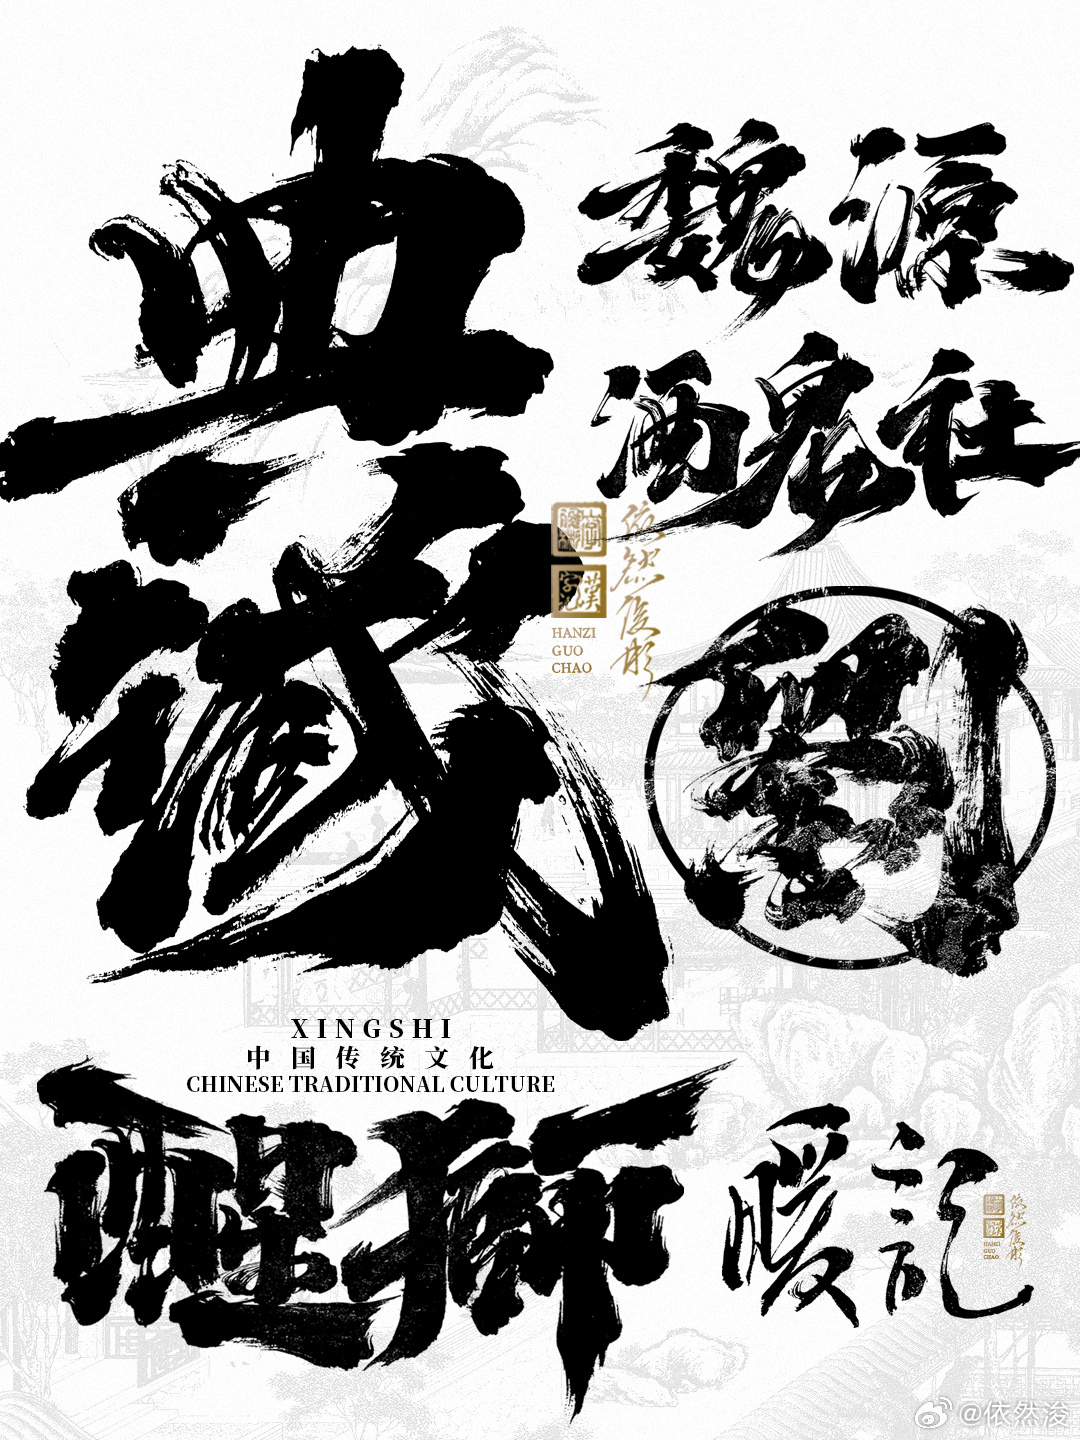 典
魏源
酒鬼社
HANZI
GUO
CHAO
劉
XINGSHI
中国传统文化
CHINESE TRADITIONAL CULTURE
醒獅
暖記
HANZI
GUO
CHAO
@依然浚